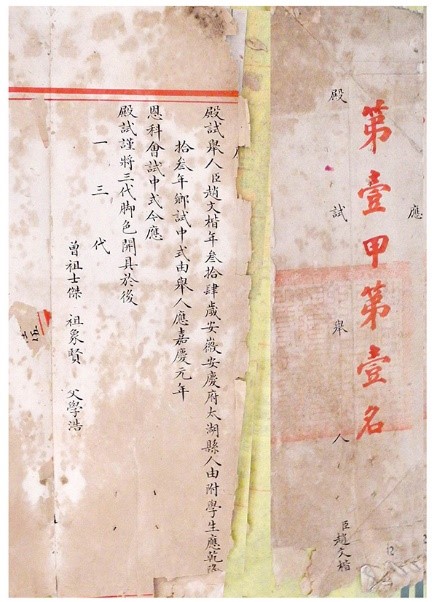 應
第壹甲第壹名
殿試舉人
臣趙文楷
殿試舉人臣趙文楷年叁拾肆歲安徽安慶府太湖縣人由附學生應乾隆
拾叁年鄉試中式由舉人應嘉慶元年
恩科會試中式今應
殿試謹將三代脚色開具於後
一三代
曾祖士傑 祖象賢 父學浩